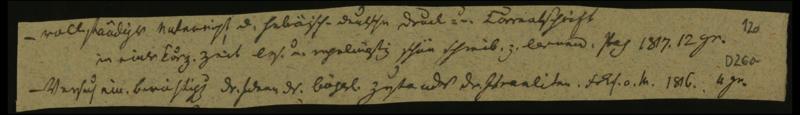 – vollständiger Unterricht d. hebräisch-deutsche Druck u. Correntschrift
in einer kurz. Zeit les. u. regelmäßig schön schreib. z. lernen. Prag 1817. 12 gr. 120
– Versuch ein. berichtig. der Ideen der bürgerl. Zustandes der Israeliten. Fkf. o. M. 1816. 4 gr. D260